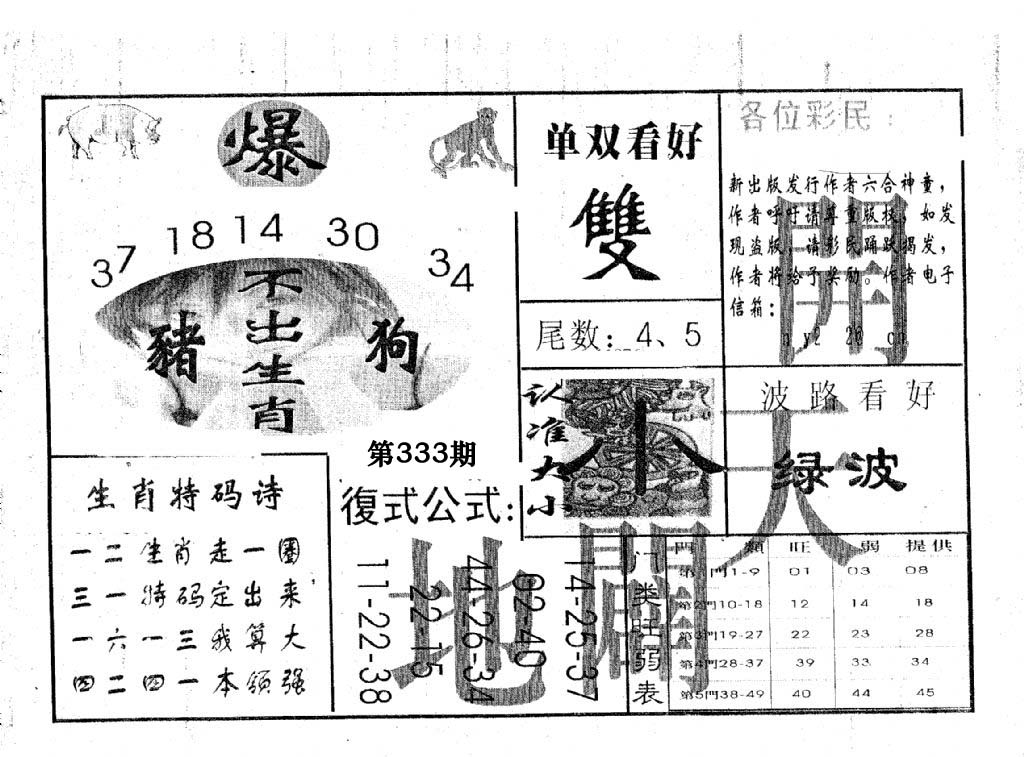 爆
37 18 14 30 34
不出生肖
豬
狗
第333期
单双看好
雙
尾数：4、5
各位彩民：
新出版发行作者六合神童，
作者呼吁请尊重版权，如发
现盗版，请彩民踊跃揭发，
作者将给予奖励。作者电子
信箱：
認准大小
小
波路看好
绿波
生肖特码诗
一二生肖走一圈
三一特码定出来
一六一三我算大
四二四一本领强
復式公式：
14-25-37
02-40
44-26-34
22-15
11-22-38
天
地
開
開
门类旺弱表
門類 旺 弱 提供
第1門1-9 01 03 08
第2門10-18 12 14 18
第3門19-27 22 23 28
第4門28-37 39 33 34
第5門38-49 40 44 45